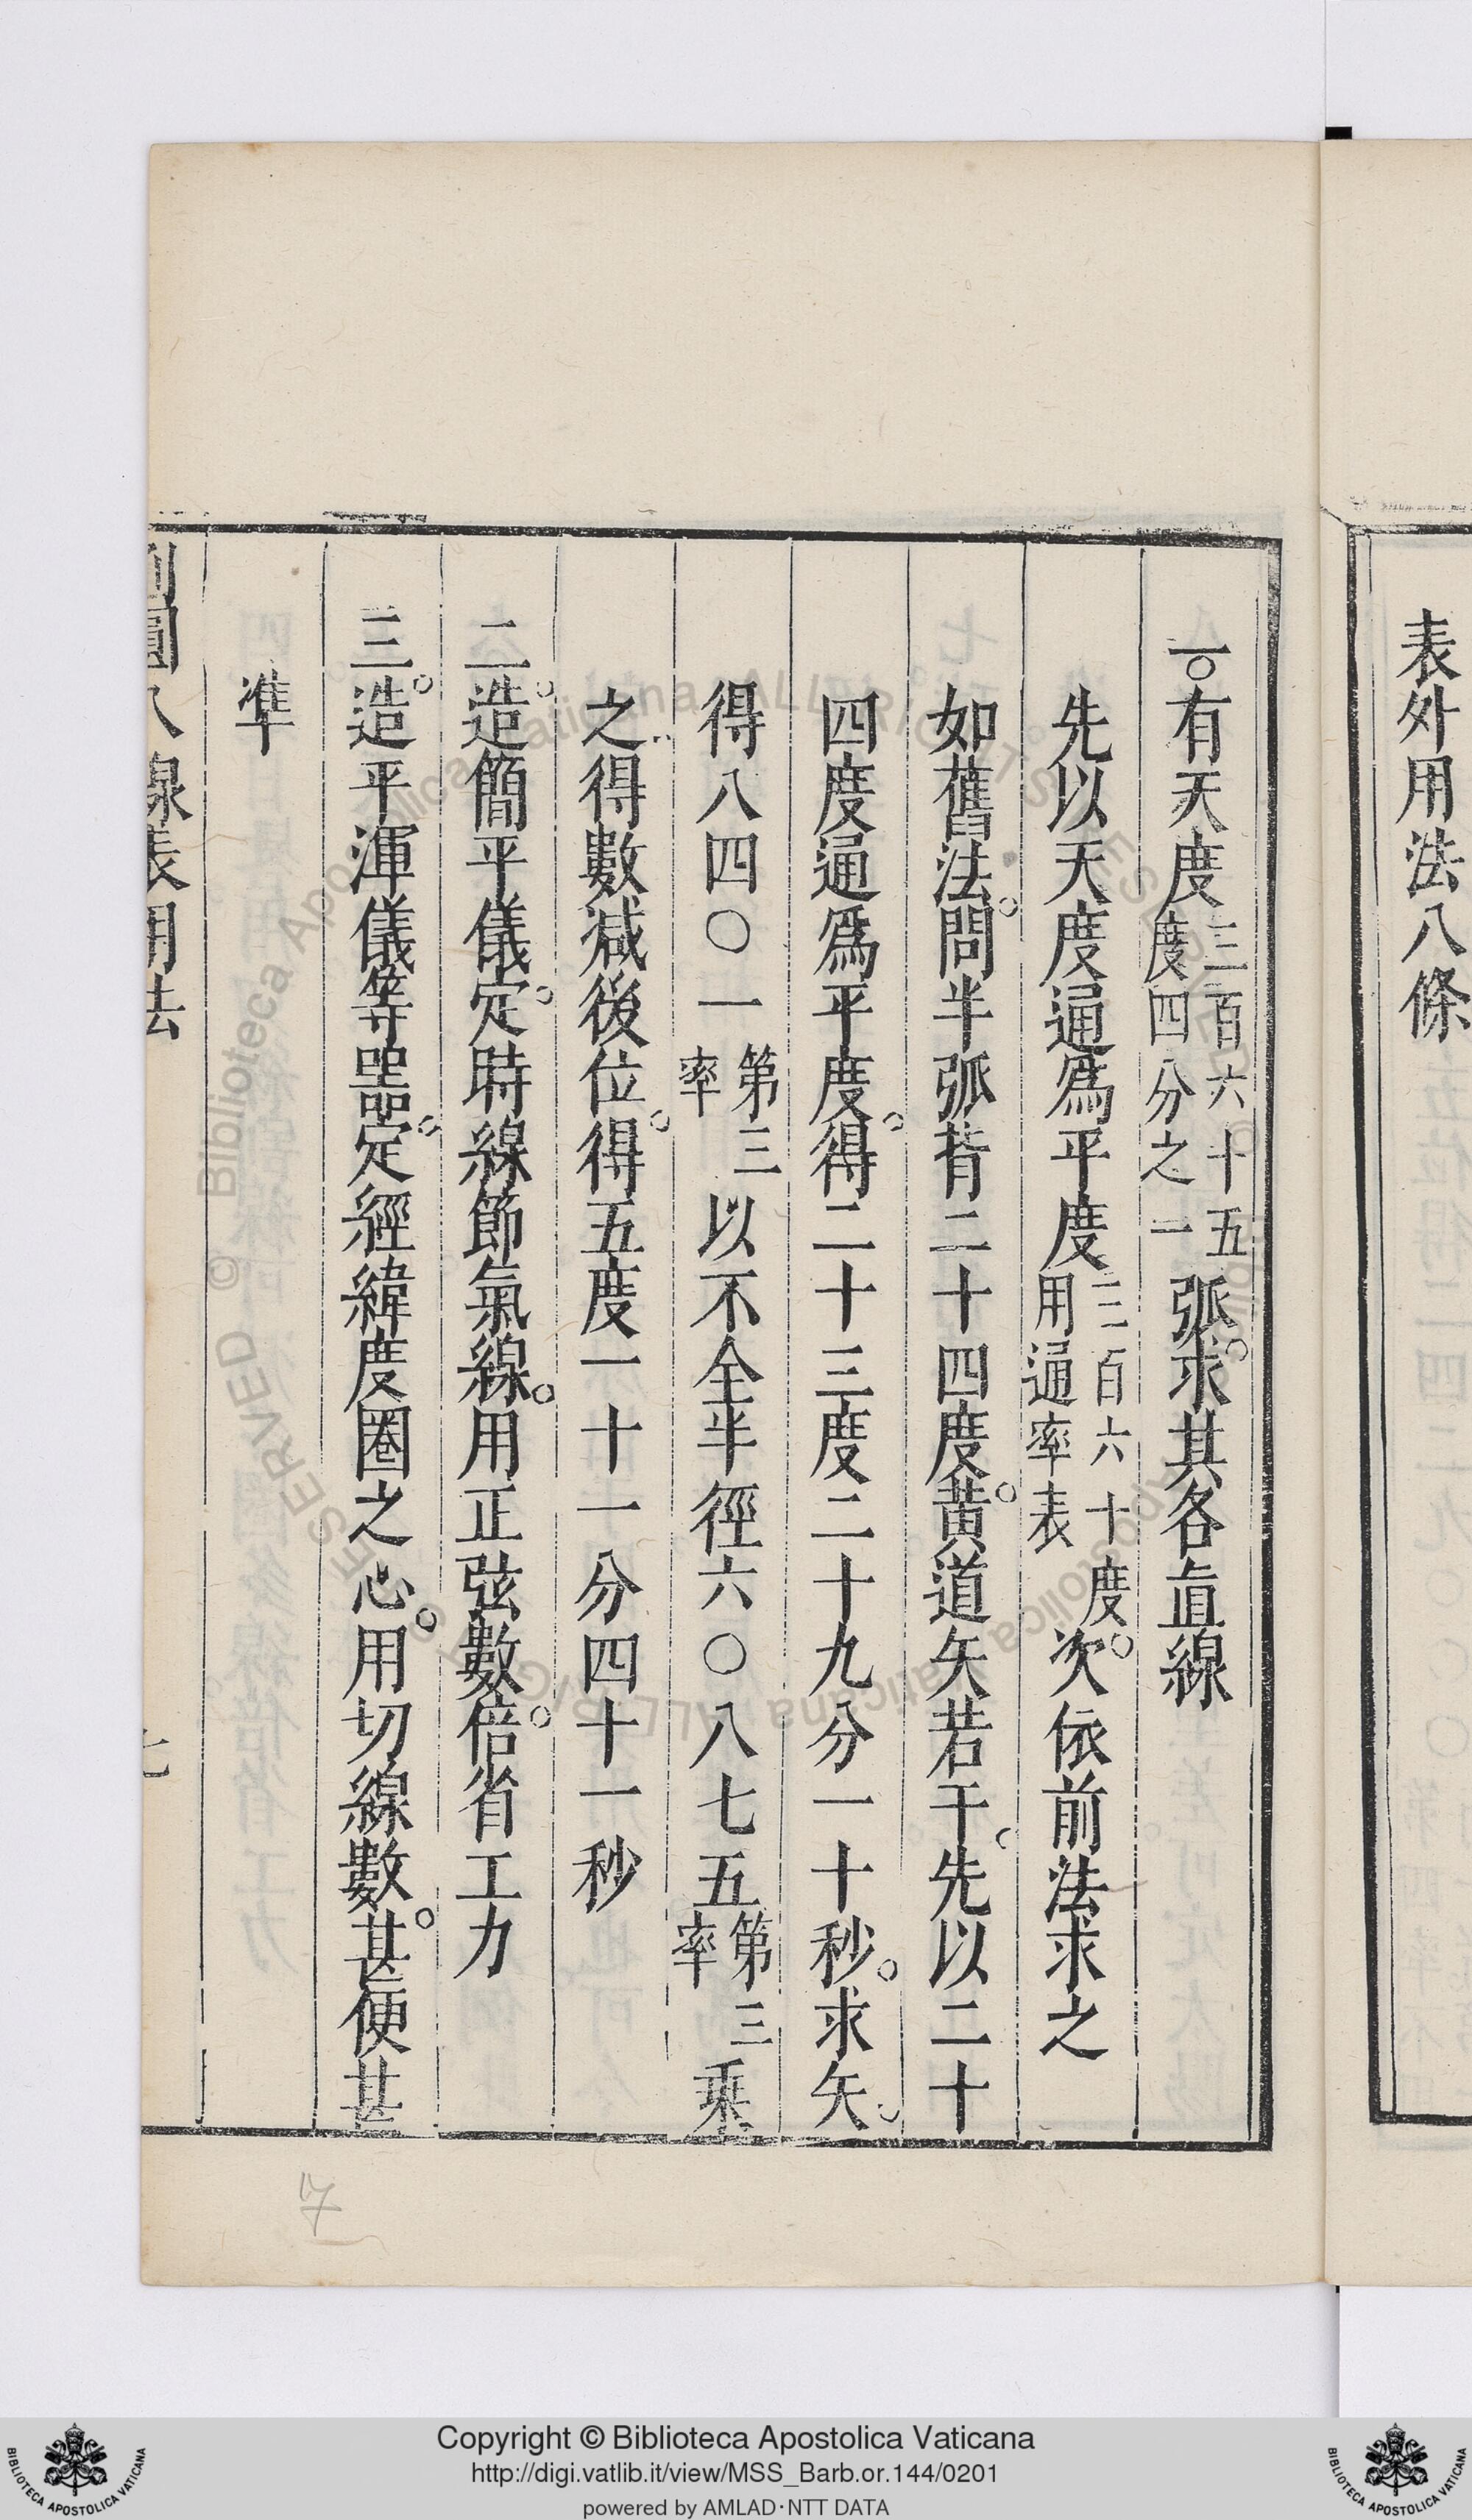 表外用法八條
一。有天度三百六十五度四分之一弧。求其各直線
先以天度通爲平度三百六十度用通率表。次依前法求之
如舊法。問半弧背二十四度。黃道矢若干。先以二十
四度通爲平度。得二十三度二十九分一十秒。求矢
得八四〇一第三率以不全半徑六〇八七五第三率乘
之得數减後位。得五度一十一分四十一秒
二。造簡平儀。定時線節氣線。用正弦數倍。省工力
三。造平渾儀等器。定經緯度圈之心。用切線數。甚便甚
準
割圓八線表用法
七
7
© Biblioteca Apostolica Vaticana ALL RIGHTS RESERVED
Copyright © Biblioteca Apostolica Vaticana
http://digi.vatlib.it/view/MSS_Barb.or.144/0201
powered by AMLAD·NTT DATA
BIBLIOTECA APOSTOLICA VATICANA
BIBLIOTECA APOSTOLICA VATICANA